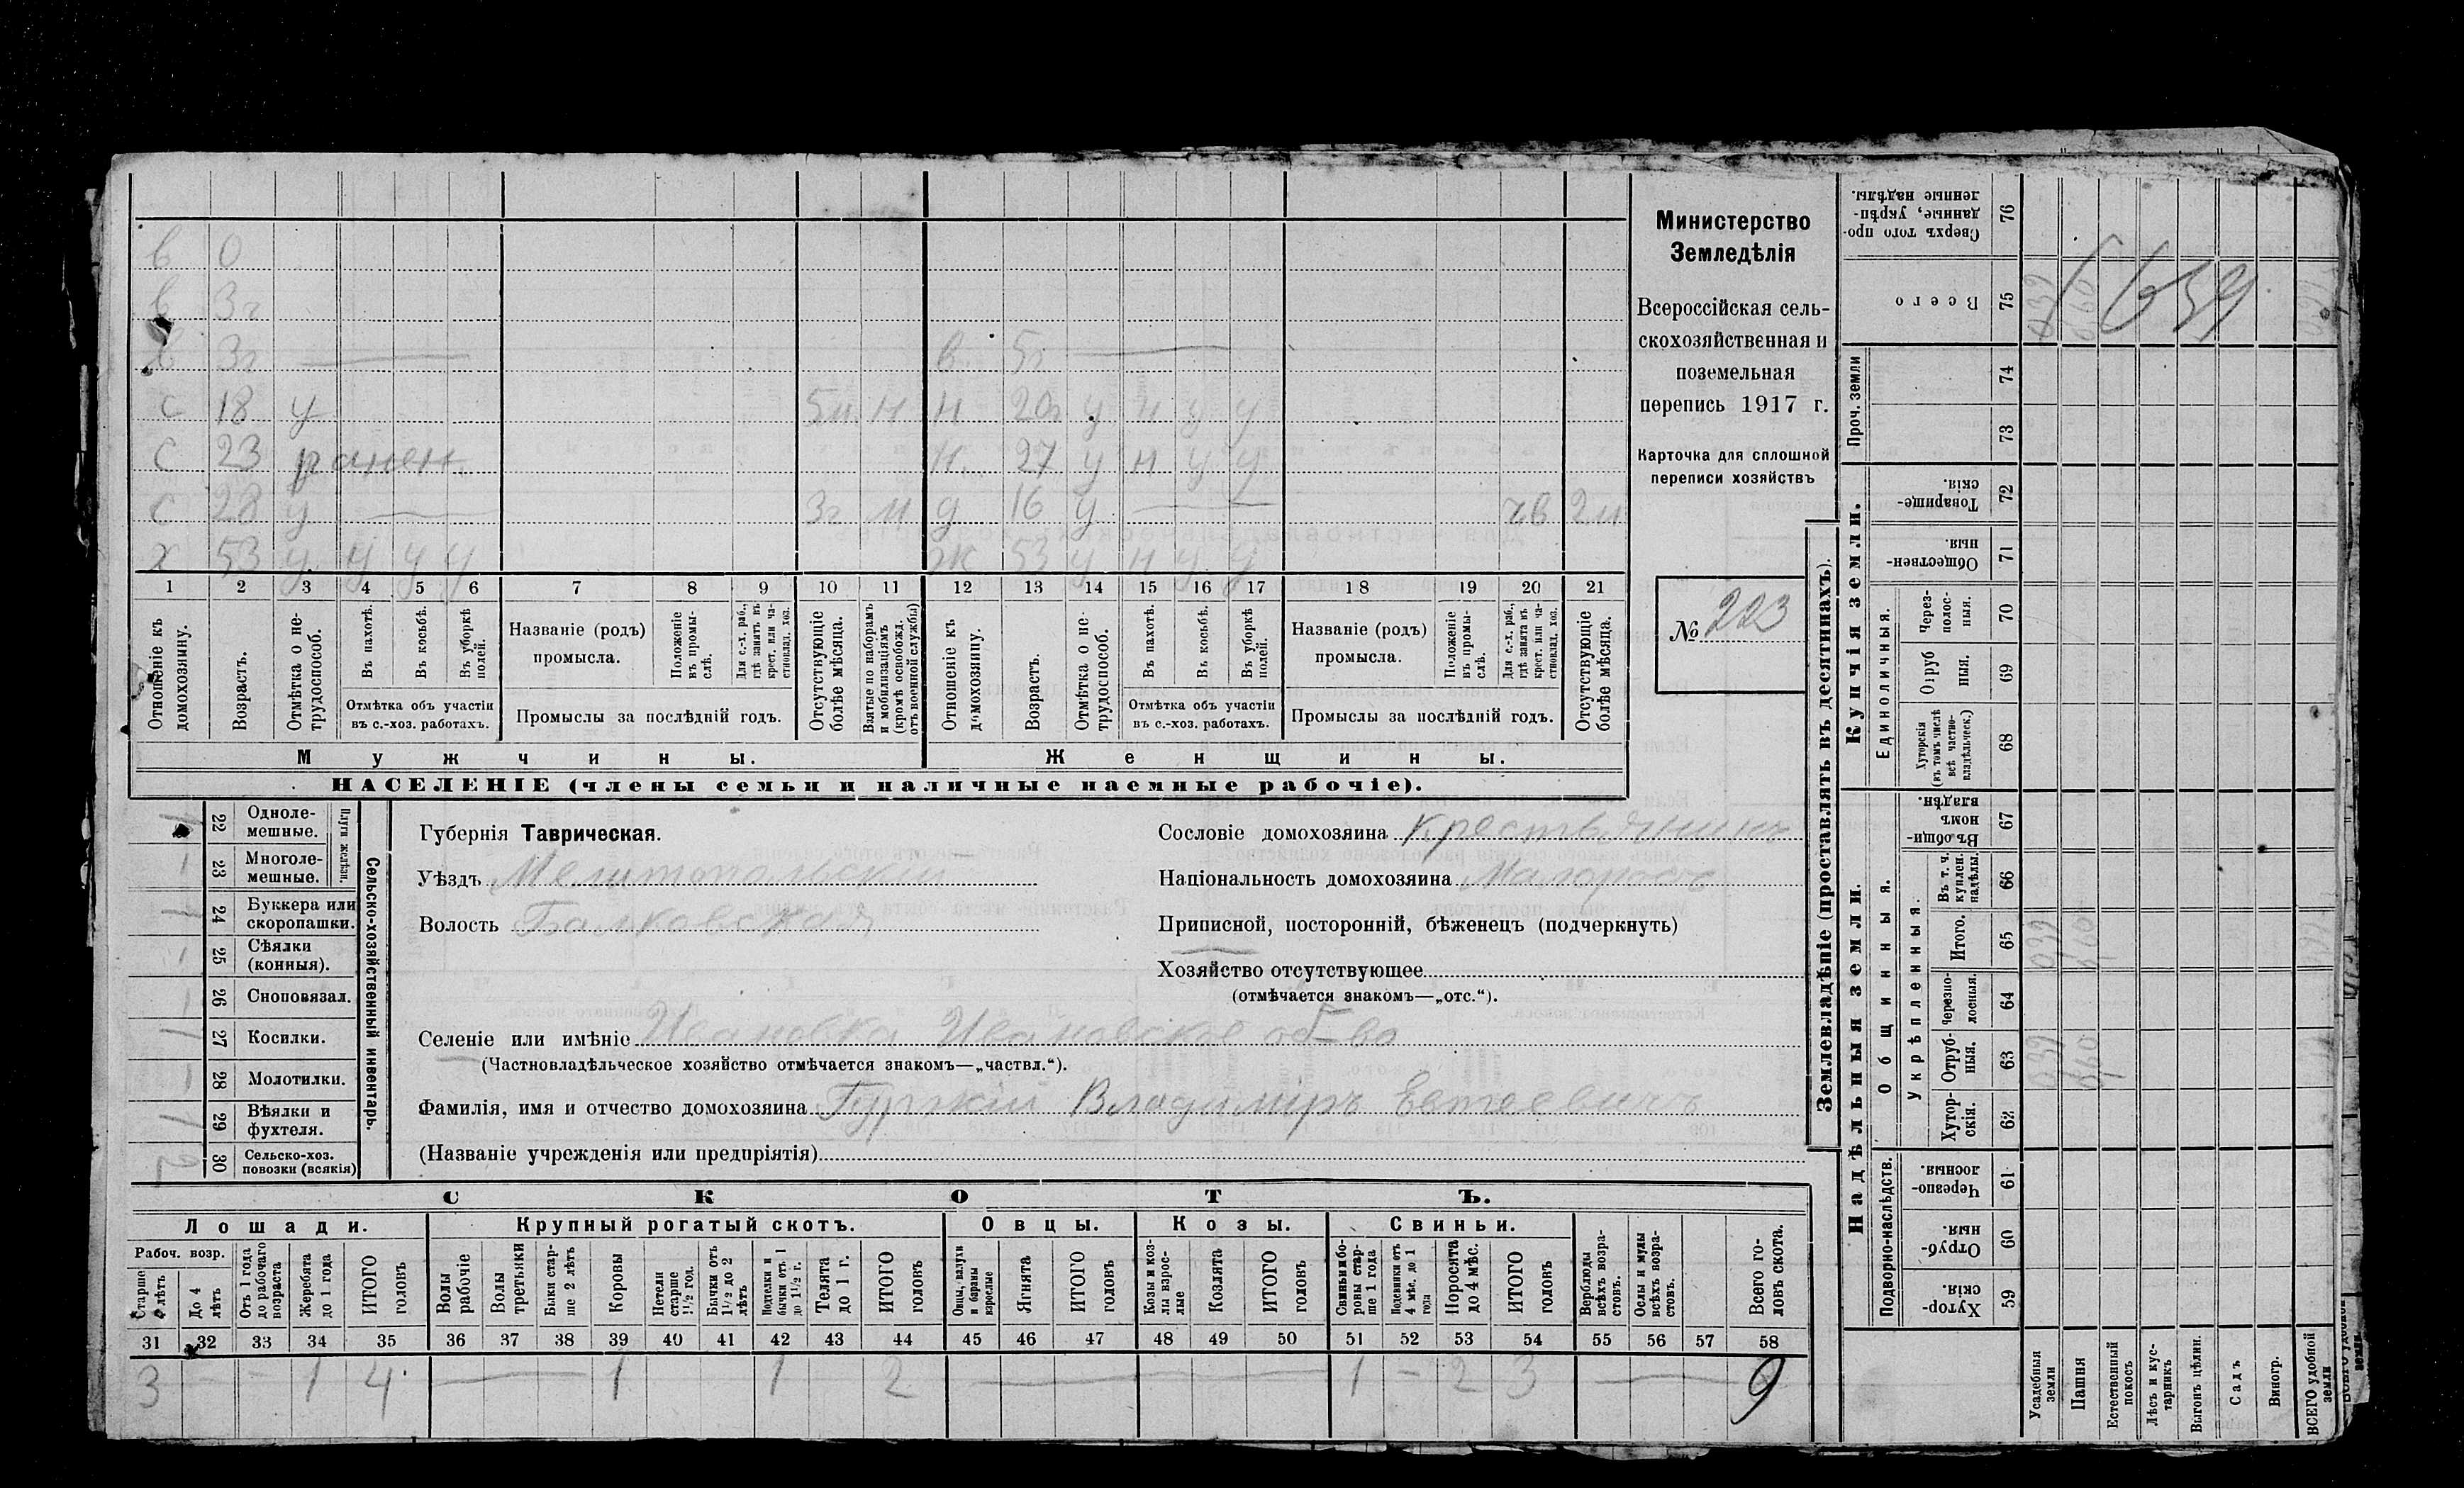 в 0
в 3г
в 3г в. 5г
с 18 у 5м н н 20г у н у у
с 23 ранен н. 27 у н у у
с 28 у 3г м д 16 у чв 2м
х 53 у у у у ж 53 у н у у
1 2 3 4 5 6 7 8 9 10 11 12 13 14 15 16 17 18 19 20 21
Отношеніе къ домохозяину.
Возрастъ.
Отмѣтка о нетрудоспособ.
Въ пахотѣ.
Въ косьбѣ.
Въ уборкѣ полей.
Отмѣтка объ участіи
въ с.-хоз. работахъ.
Названіе (родъ)
промысла.
Положеніе въ промыслѣ.
Для с.-х. раб., гдѣ занятъ въ крест. или частновлад. хоз.
Промыслы за послѣдній годъ.
Отсутствующіе болѣе мѣсяца.
Взятые по наборамъ и мобилизаціямъ (кромѣ освобожд. отъ военной службы)
Отношеніе къ домохозяину.
Возрастъ.
Отмѣтка о нетрудоспособ.
Въ пахотѣ.
Въ косьбѣ.
Въ уборкѣ полей.
Отмѣтка объ участіи
въ с.-хоз. работахъ.
Названіе (родъ)
промысла.
Положеніе въ промыслѣ.
Для с.-х. раб., гдѣ занята въ крест. или частновлад. хоз.
Промыслы за послѣдній годъ.
Отсутствующіе болѣе мѣсяца.
Мужчины. Женщины.
НАСЕЛЕНІЕ (члены семьи и наличные наемные рабочіе).
Министерство
Земледѣлія
Всероссійская сель-
скохозяйственная и
поземельная
перепись 1917 г.
Карточка для сплошной
переписи хозяйствъ
№ 223
Сельско-хозяйственный инвентарь.
Плуги желѣзн.
22 Одноле-
мешные.
23 Многоле-
мешные.
24 Буккера или
скоропашки.
25 Сѣялки
(конныя).
26 Сноповязал.
27 Косилки.
28 Молотилки.
29 Вѣялки и
фухтеля.
30 Сельско-хоз.
повозки (всякія)
Губернія Таврическая.
Уѣздъ Мелитопольскій
Волость Балковская
Сословіе домохозяина Крестьянинъ
Національность домохозяина Малороссъ
Приписной, посторонній, бѣженецъ (подчеркнуть)
Хозяйство отсутствующее
(отмѣчается знакомъ—„отс.“).
Селеніе или имѣніе Ивановка Ивановское об-во
(Частновладѣльческое хозяйство отмѣчается знакомъ—„частвл.“).
Фамилія, имя и отчество домохозяина Владимиръ Евтеевичъ
(Названіе учрежденія или предпріятія)
СКОТЪ.
Лошади. Крупный рогатый скотъ. Овцы. Козы. Свиньи.
Рабоч. возр.
Старше 4 лѣтъ
До 4 лѣтъ
Отъ 1 года до рабочаго возраста
Жеребята до 1 года
ИТОГО головъ
Волы рабочіе
Волы третьяки
Быки старше 2 лѣтъ
Коровы
Нетели старше 1½ год.
Бычки отъ 1½ до 2 лѣтъ
Подтелки и бычки отъ 1 до 1½ г.
Телята до 1 г.
ИТОГО головъ
Овцы, валухи и бараны взрослые
Ягнята
ИТОГО головъ
Козы и козлы взрослые
Козлята
ИТОГО головъ
Свиньи и бороны старше 1 года
Подсвинки отъ 4 мѣс. до 1 года
Поросята до 4 мѣс.
ИТОГО головъ
Верблюды всѣхъ возрастовъ.
Ослы и мулы всѣхъ возрастовъ.
Всего головъ скота.
31 32 33 34 35 36 37 38 39 40 41 42 43 44 45 46 47 48 49 50 51 52 53 54 55 56 57 58
3 — — 1 4 — 1 1 2 — 1 — 2 3 — 9
Землевладѣніе (проставлять въ десятинахъ).
Купчія земли.
Надѣльныя земли.
76 Сверхъ того проданные, укрѣпленные надѣлы.
75 Всего
Проч. земли
74
73
72 Товарищескія.
71 Общественныя.
Единоличныя.
70 Черезполосныя.
69 Отрубныя.
68 Хуторскія (въ томъ числѣ всѣ частновладѣльческ.)
Общинныя.
67 Въ общинномъ владѣн.
Укрѣпленныя.
66 Въ т. ч. куплен. надѣлы.
65 Итого.
64 Черезполосныя.
63 Отрубныя.
62 Хуторскія.
Подворно-наслѣдств.
61 Черезполосныя.
60 Отрубныя.
59 Хуторскія.
Усадебныя земли
Пашня
Естественный покосъ
Лѣсъ и кустарникъ
Выгонъ цѣлин.
Садъ
Виногр.
ВСЕГО удобной земли
039
960
039
960
039
960